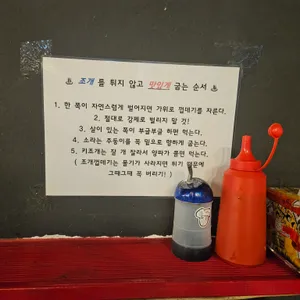 ♨ 조개를 튀지 않고 맛있게 굽는 순서 ♨
1. 한 쪽이 자연스럽게 벌어지면 가위로 껍데기를 자른다.
2. 절대로 강제로 벌리지 말 것!
3. 살이 있는 쪽이 부글부글 하면 먹는다.
4. 소라는 주둥이를 꼭 밑으로 향하게 굽는다.
5. 키조개는 잘 게 잘라서 양파가 쫄면 먹는다.
( 조개껍데기는 물기가 사라지면 튀기 때문에
그때그때 꼭 버리기! )